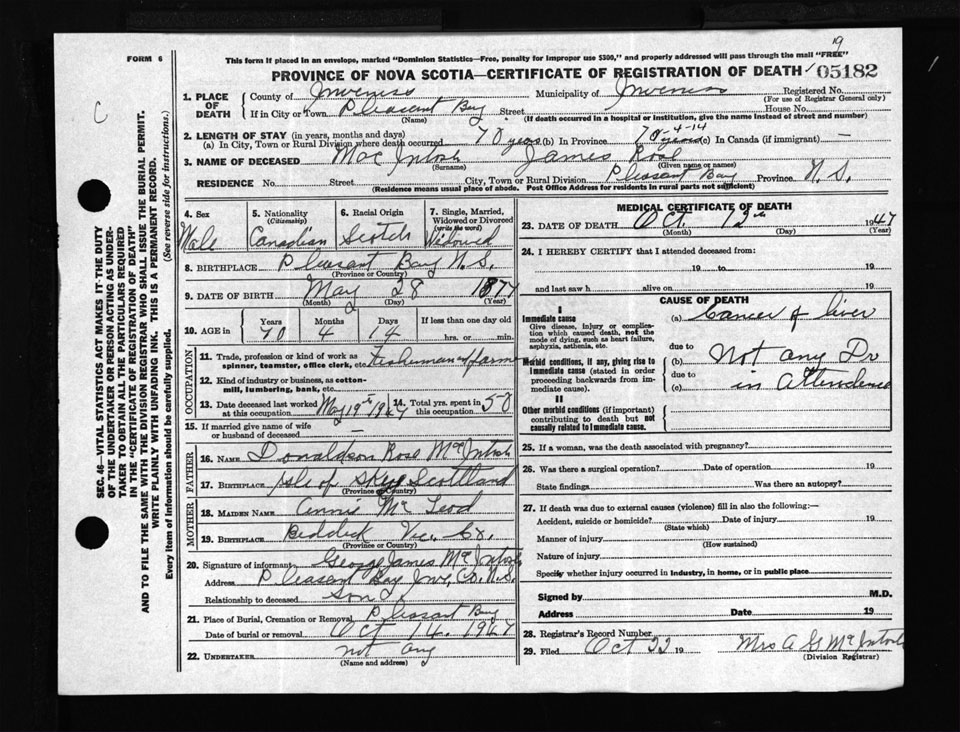 19
FORM 6
This form if placed in an envelope, marked "Dominion Statistics—Free, penalty for improper use $300," and properly addressed will pass through the mail "FREE"
PROVINCE OF NOVA SCOTIA—CERTIFICATE OF REGISTRATION OF DEATH 05182
C
SEC. 46—VITAL STATISTICS ACT MAKES IT THE DUTY
OF THE UNDERTAKER OR PERSON ACTING AS UNDER-
TAKER TO OBTAIN ALL THE PARTICULARS REQUIRED
IN THE "CERTIFICATE OF REGISTRATION OF DEATH"
AND TO FILE THE SAME WITH THE DIVISION REGISTRAR WHO SHALL ISSUE THE BURIAL PERMIT.
WRITE PLAINLY WITH UNFADING INK. THIS IS A PERMANENT RECORD.
Every item of information should be carefully supplied. (See reverse side for instructions.)
1. PLACE OF DEATH County of Inverness Municipality of Inverness Registered No.
(For use of Registrar General only)
If in City or Town Pleasant Bay Street House No.
(Name) (If death occurred in a hospital or institution, give the name instead of street and number)
2. LENGTH OF STAY (in years, months and days)
(a) In City, Town or Rural Division where death occurred 70 years (b) In Province 70-4-14 years (c) In Canada (if immigrant) —
3. NAME OF DECEASED Mac Intosh James Ross
(Surname) (Given name or names)
RESIDENCE No. Street City, Town or Rural Division Pleasant Bay Province N.S.
(Residence means usual place of abode. Post Office Address for residents in rural parts not sufficient)
4. Sex Male
5. Nationality (Citizenship) Canadian
6. Racial Origin Scotch
7. Single, Married, Widowed or Divorced (write the word) Widowed
8. BIRTHPLACE Pleasant Bay N.S.
(Province or Country)
9. DATE OF BIRTH May 28 1877
(Month) (Day) (Year)
10. AGE in Years Months Days If less than one day old
70 4 14 hrs. or min.
OCCUPATION
11. Trade, profession or kind of work as
spinner, teamster, office clerk, etc. fisherman farmer
12. Kind of industry or business, as cotton-
mill, lumbering, bank, etc.
13. Date deceased last worked at this occupation May 19th 1947 14. Total yrs. spent in this occupation 50
15. If married give name of wife
or husband of deceased —
FATHER
16. NAME Donaldson Ross McIntosh
17. BIRTHPLACE Isle of Skye Scottland
(Province or Country)
MOTHER
18. MAIDEN NAME Annie Mc Leod
19. BIRTHPLACE Beddeck Vic. Co.
(Province or Country)
20. Signature of informant George James McIntosh
Address Pleasant Bay Inv. Co. N.S.
Relationship to deceased Son
21. Place of Burial, Cremation or Removal Pleasant Bay
Date of burial or removal Oct 14. 1947
22. UNDERTAKER not any
(Name and address)
MEDICAL CERTIFICATE OF DEATH
23. DATE OF DEATH Oct. 12th 1947
(Month) (Day) (Year)
24. I HEREBY CERTIFY that I attended deceased from:
19 to 19
and last saw h alive on 19
CAUSE OF DEATH
I
Immediate cause (a) Cancer of liver
Give disease, injury or complica-
tion which caused death, not the
mode of dying, such as heart failure,
asphyxia, asthenia, etc.
due to
Morbid conditions, if any, giving rise to
immediate cause (stated in order
proceeding backwards from im-
mediate cause).
(b) Not any Dr
due to
(c) in Attendence
II
Other morbid conditions (if important)
contributing to death but not
causally related to immediate cause.
25. If a woman, was the death associated with pregnancy?
26. Was there a surgical operation? Date of operation 19
State findings Was there an autopsy?
27. If death was due to external causes (violence) fill in also the following:—
Accident, suicide or homicide? Date of injury 19
(State which)
Manner of injury
(How sustained)
Nature of injury
Specify whether injury occurred in industry, in home, or in public place
Signed by M.D.
Address Date 19
28. Registrar's Record Number
29. Filed Oct 22 19 Mrs A G McIntosh
(Division Registrar)